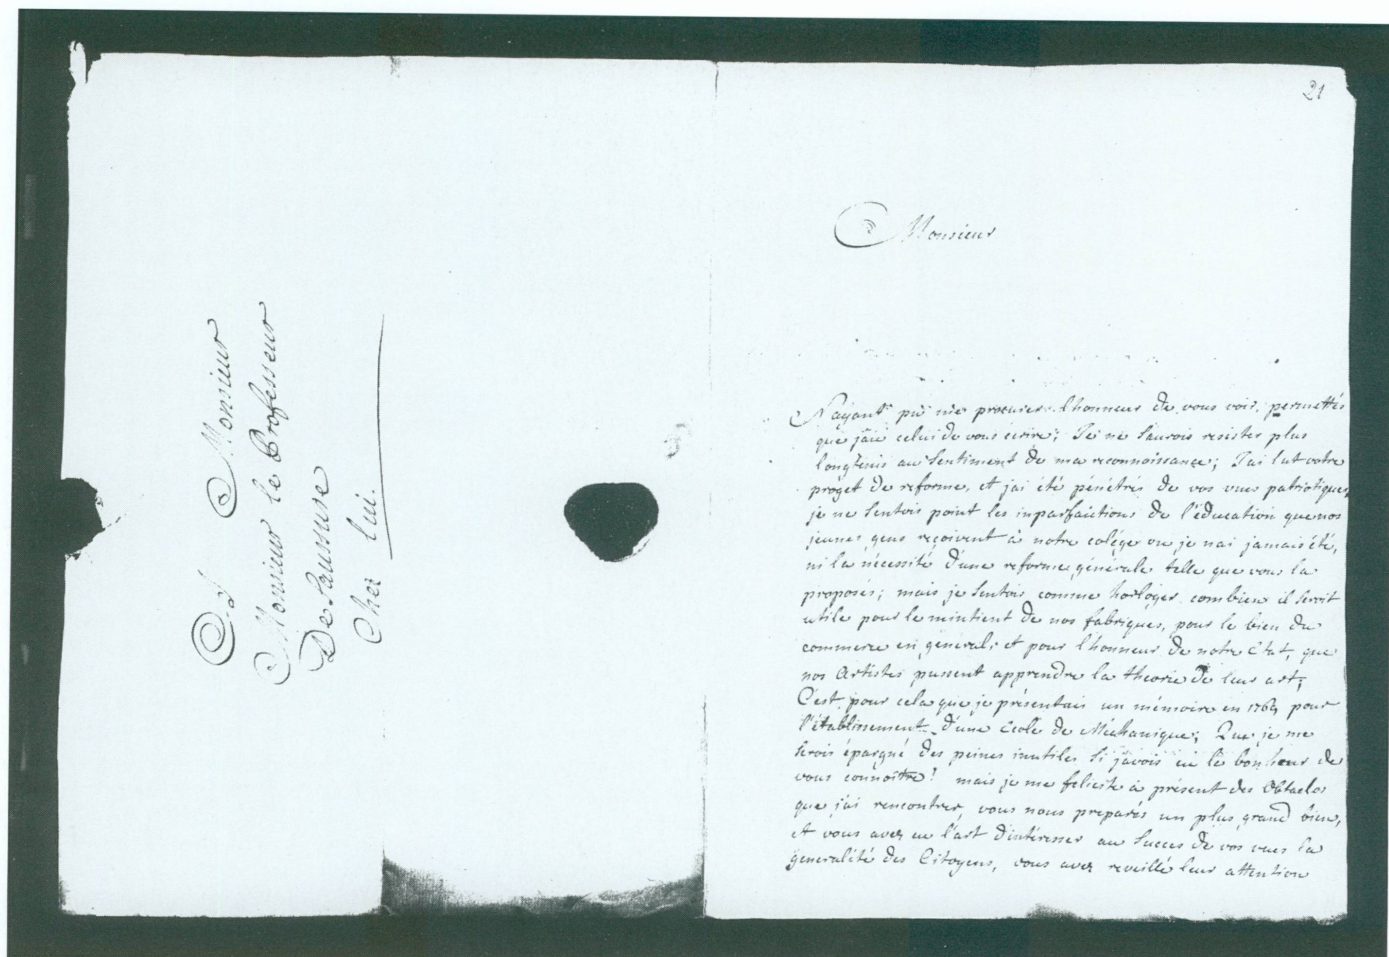 A Monsieur
Monsieur le Professeur
De Saussure
Chez lui.
21
Monsieur
N'ayant pû me procurer l'honneur de vous voir, permettés
que j'aie celui de vous ecrire; Je ne Saurois resister plus
longtems au Sentiment de ma reconnoissance; J'ai lut votre
proget de reforme, et j'ai été pénétré de vos vues patriotiques,
je ne Sentois point les inparfaitions de l'éducation que nos
jeunes gens reçoivent à notre colége ou je nai jamais été,
ni la nécessité d'une reforme générale telle que vous la
proposés; mais je Sentois comme horloger combien il Seroit
utile pour le mintient de nos fabriques, pour le bien du
commerce en général, et pour l'honneur de notre Etat, que
nos Artistes pussent apprendre la theorie de leur art;
C'est pour cela que je présentais un mémoire en 1769 pour
l'établissement d'une Ecole de Méchanique; Que je me
Serois épargné des peines inutiles Si j'avois eu le bonheur de
vous connoître! mais je me felicite à présent des Obtacles
que j'ai rencontrer, vous nous preparés un plus grand bien,
et vous avez eu l'art d'intéresser au Succes de vos vues la
generalité des Citoyens, vous avez reveillé leur attention